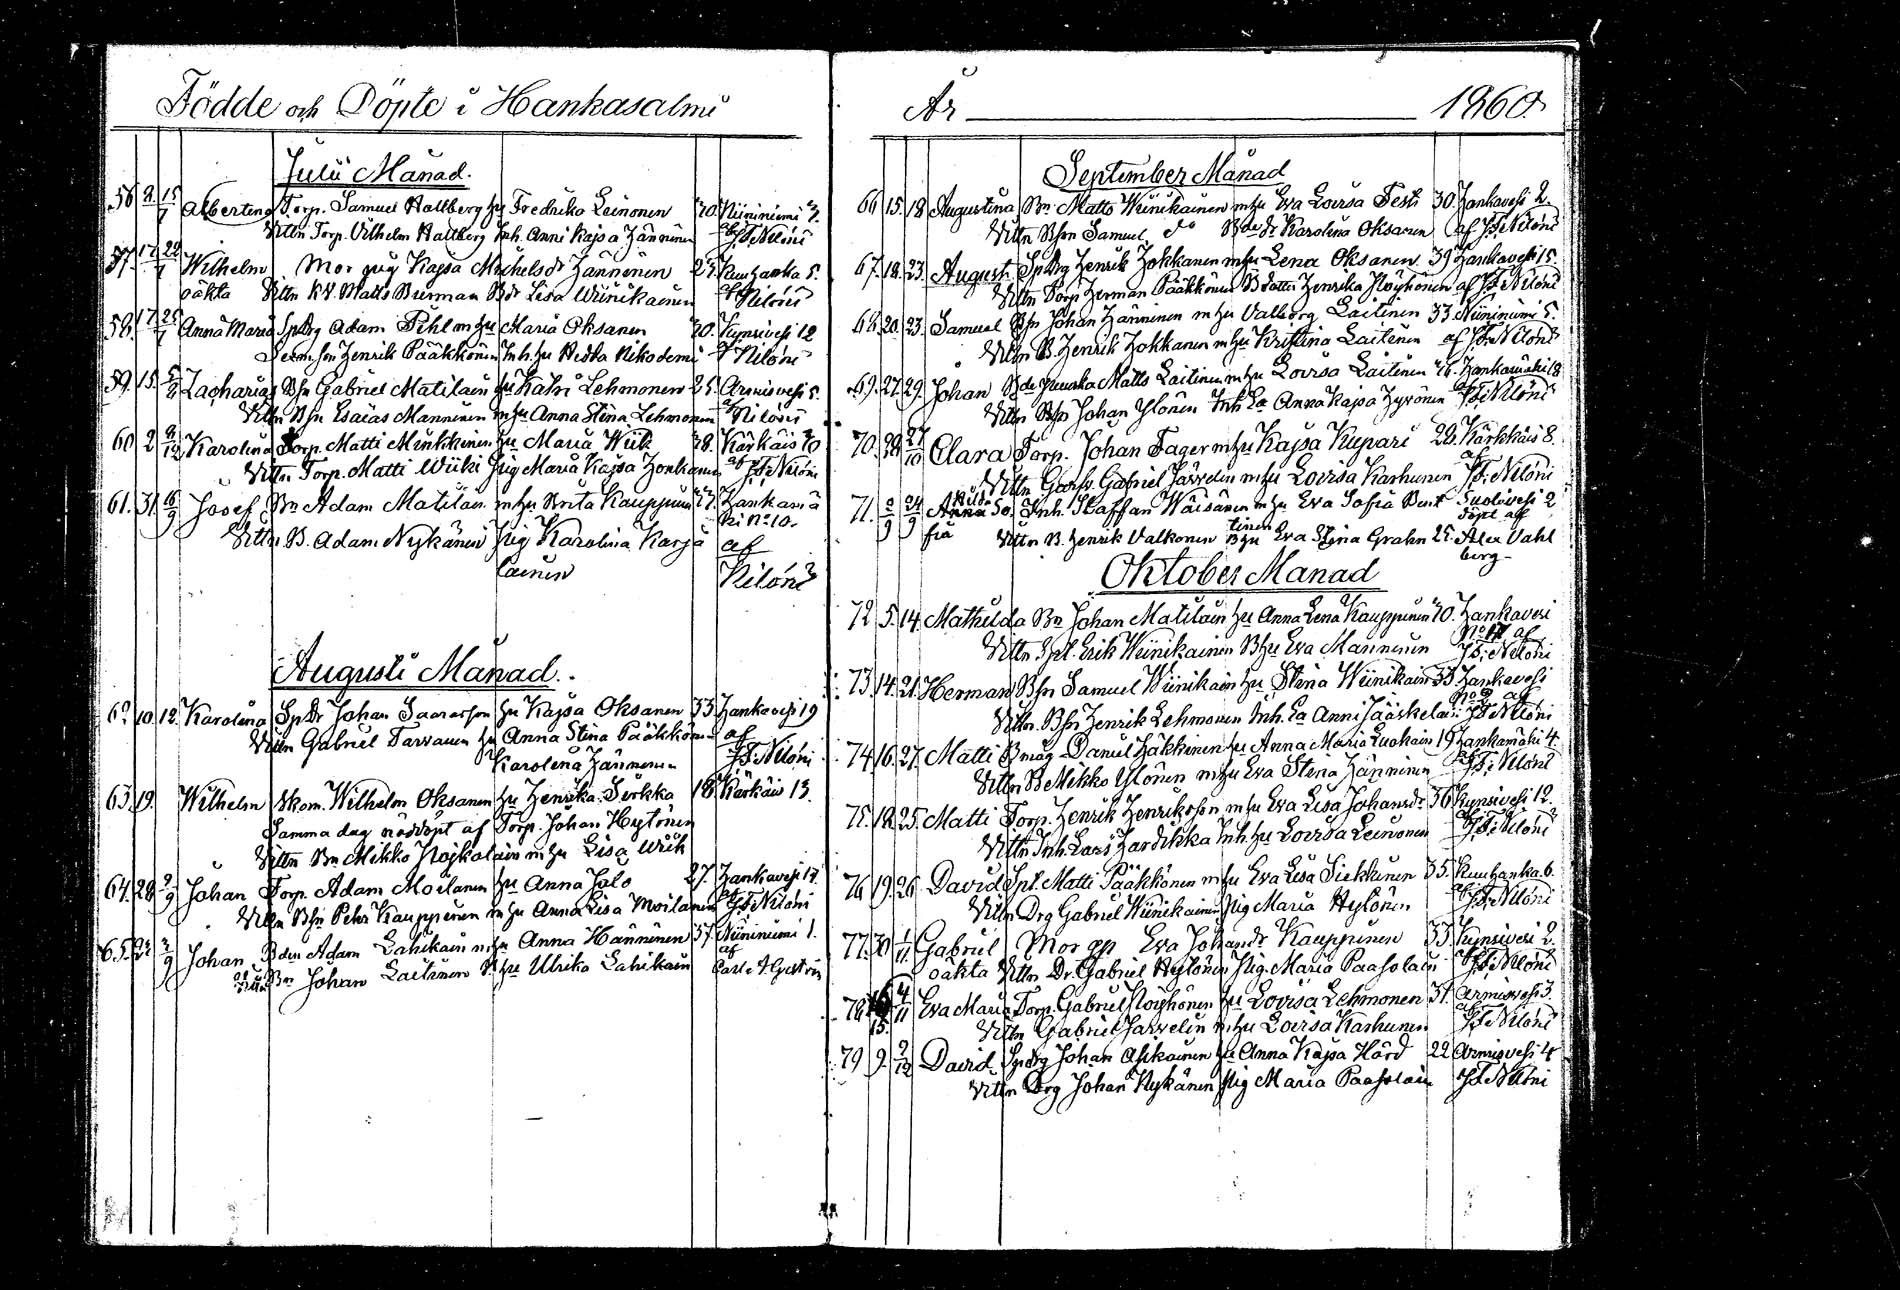 Födde och Döpte i Hankasalmi
Julii Månad.
56 2 15/7 Albertina Torp. Samuel Hallberg hu Fredrika Leinonen 20. Niinimemi 7.
Vittn Torp. Vilhelm Hallberg Inh. Anni Kajsa Jänninen af J.F. Nilóni
57. 17 22/7 Wilhelm Mor pig Kajsa Michelsdr Jänninen 27. Kuuhanka 5.
oäkta Vittn Matts Burman Lisa Wiinikainen af Nilóni
58. 17 25/7 Anna Maria SpDrg Adam Pihl m hu Maria Oksanen 20. Kynsivesi 12
Henrik Pääkkönen Inh. hu Hedda Nikodemi af Nilóni
59. 15. 5/8 Zacharias Bsn Gabriel Matilain hu Katri Lehmonen 25. Armisvesi 5.
Vittn Bsn Esaias Manninen m hu Anna Stina Lehmonen af Nilóni
60 2 Karolina Torp. Matti Minkkinen hu Maria Wiik 28. Kärkäis 10
Vittn Torp. Matti Wiiki Pig Maria Kajsa Honkanen af J.F. Nilóni
61. 31. 16/9 Josef Bn Adam Matilain m hu Brita Kauppinen 27. Hankamä
ki No 10.
Vittn B. Adam Nykänen Pig Karolina Karja
lainen af
Nilóni
Augusti Månad.
62 10. 12. Karolina SpDr Johan Saarason hu Kajsa Oksanen 33. Hankavesi 19
Vittn Gabriel Tarvanen hu Anna Stina Pääkkönen af
Karolina Jänninen J.F. Nilóni
63. 19. Wilhelm Skom. Wilhelm Oksanen hu Henrika Sirkka 18. Kärkäis 13.
Samma dag nöddöpt af Torp. Johan Hytönen
Vittn Bn Mikko Hojkolain m hu Lisa Wiik
64. 28 2/9 Johan Torp. Adam Moilanen hu Anna Jalo 27. Hankavesi 17
Vittn Bsn Pehr Kauppinen m hu Anna Lisa Moilanen af J.F. Nilóni
65. 22 2/9 Johan Bden Adam Lahikain m hu Anna Hänninen 37. Niinimemi 1.
Vittn Bn Johan Laitinen B hu Ulrika Lahikain af Carl
År 1860.
September Månad
66 15. 18 Augustina Bn Matts Wiinikainen m hu Eva Lovisa Testi 30. Hankavesi 2.
Vittn Bson Samuel do Karolina Oksanen af J.F. Nilóni
67. 18. 23. August SpDrg Henrik Hokkanen m hu Lena Oksanen 39 Hankavesi 15.
Vittn Torp Herman Pääkkönen Henrika Höykönen af J.F. Nilóni
68. 20. 23. Samuel Bsn Johan Hänninen m hu Valborg Laitinen 33. Niinimemi 5.
Vittn B. Henrik Hokkanen m hu Kristina Laitinen af J.F. Nilóni
69. 27. 29. Johan Matts Laitinen m hu Lovisa Laitinen Hankamäki 18
Vittn Bsn Johan Ylönen Inh. Ea Anna Kajsa Hyvönen af J.F. Nilóni
70. 29 27/10 Clara Torp. Johan Fager m hu Kajsa Kupari 28. Kärkkäis 8.
Vittn Garfv. Gabriel Jarvelin m hu Lovisa Karhunen af J.F. Nilóni
71. 2/9 24/9 Hilda So. Inh. Staffan Wäisänen m hu Eva Sofia Bent Suolivesi 2
fia tinen Döpt af
Vittn B. Henrik Valkonen B hu Eva Stina Grahn 25. Alex Vahl
berg
Oktober Månad
72 5. 14. Mathilda Bn Johan Matilain hu Anna Lena Kauppinen 40. Hankavesi
No 17 af
Vittn Spl. Erik Wiinikainen B hu Eva Manninen J.F. Nilóni
73. 14. 21. Herman Bsn Samuel Wiinikain hu Stina Wiinikain 33 Hankavesi
No 2 af
Vittn Bsn Henrik Lehmonen Inh. Ea Anni Jääskelain J.F. Nilóni
74. 16. 27. Matti Bmåg Daniel Häkkinen hu Anna Maria Luokain 19 Hankamäki 4.
Vittn B Mikko Ylönen m hu Eva Stina Hänninen af J.F. Nilóni
75. 18 25. Matti Torp. Henrik Henriksson m hu Eva Lisa Johansdr 36 Kynsivesi 12.
Vittn Inh. Lars Hardikka Inh. hu Lovisa Leinonen af J.F. Nilóni
76 19. 26 David Spl. Matti Pääkkönen m hu Eva Lisa Siekkinen 35. Kuuhanka 6.
Vittn Drg Gabriel Wiinikainen Pig Maria Hytönen af J.F. Nilóni
77. 30 1/11 Gabriel Mor pig Eva Johansdr Kauppinen 33. Kynsivesi 2.
oäkta Vittn Dr Gabriel Hytönen Pig. Maria Paasolain af J.F. Nilóni
78 16 4/11 Eva Maria Torp. Gabriel Höyhönen hu Lovisa Lehmonen 31. Armisvesi 3.
15. Vittn Gabriel Jarvelin m hu Lovisa Karhunen af J.F. Nilóni
79 9. 2/12 David SpDrg Johan Asikainen hu Anna Kajsa Hård 22 Armisvesi 4
Vittn Drg Johan Nykänen Pig Maria Paasolain J.F. Nilóni